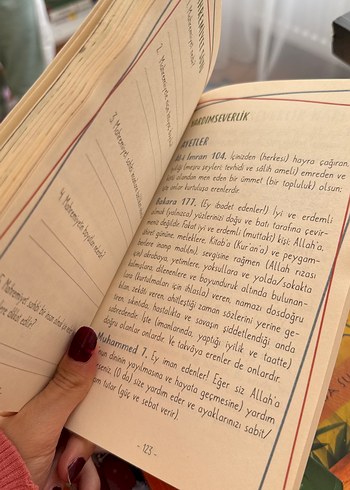 2. Mahremiyet
3. Mahremiyet
4. Mahremiyet
YARDIMSEVERLİK
AYETLER
Âl-i İmran 104. İçinizden (herkesi) hayra çağıran,
(meşru şeyleri; tevhidi ve sâlih ameli) emreden ve
men eden bir ümmet (bir topluluk) olsun;
onlar kurtuluşa erenlerdir.
Bakara 177. (Ey ibadet edenler!) İyi ve erdemli
olmak (yalnızca) yüzlerinizi doğu ve batı tarafına çevir-
meniz değildir. Fakat iyi ve erdemli (muttakî) kişi; Allah'a,
ahiret gününe, meleklere, Kitab'a (Kur'an'a) ve peygam-
berlere inanıp mal(ın)ı, sevgisine rağmen (Allah rızası
için) akrabaya, yetimlere, yoksullara ve yolda/sokakta
kalmışlara, dilenenlere ve boyunduruk altında bulunan-
lara (kurtulmaları için ihlasla) veren, namazı dosdoğru
kılan, zekâtı veren, ahitleştiği zaman sözlerini yerine ge-
tiren, sıkıntılı, hastalıkta ve savaşın şiddetlendiği anda
sabredendir. İşte (imanlarında, yaptığı iyilik ve taatte)
doğru olanlar onlardır. Ve takvâya erenler de onlardır.
Muhammed 7. Ey iman edenler! Eğer siz Allah'a
dinin yayılmasına ve hayata geçmesine) yardım
(O da) size yardım eder ve ayaklarınızı sabit/
tutar (güç ve sebat verir).
- 123 -